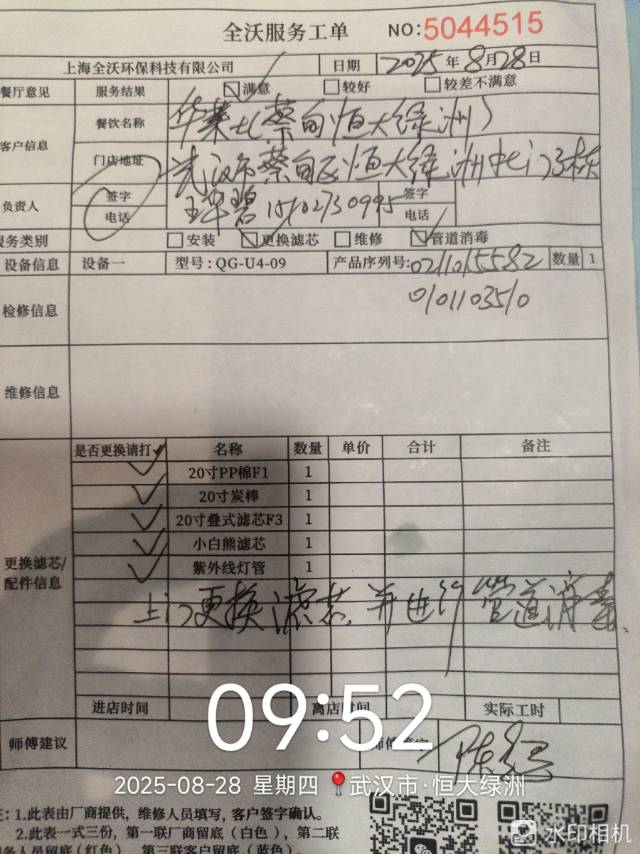 全沃服务工单 NO:5044515
上海全沃环保科技有限公司 日期 2025年8月28日
餐厅意见 服务结果 满意 较好 较差不满意
客户信息 餐饮名称 华莱士(蔡甸恒大绿洲)
门店地址 武汉市蔡甸区恒大绿洲北门3栋
负责人 签字 签字
电话 15102730995 电话
服务类别 安装 更换滤芯 维修 管道消毒
设备信息 设备一 型号:QG-U4-09 产品序列号: 0211015582 数量 1
0101103510
检修信息
维修信息
是否更换请打✓ 名称 数量 单价 合计 备注
✓ 20寸PP棉F1 1
✓ 20寸炭棒 1
✓ 20寸叠式滤芯F3 1
✓ 小白熊滤芯 1
✓ 紫外线灯管 1
更换滤芯/
配件信息
上门更换滤芯,并进行管道消毒.
进店时间 离店时间 实际工时
09:52
师傅建议
2025-08-28 星期四 武汉市·恒大绿洲
注:1.此表由厂商提供,维修人员填写,客户签字确认。
2.此表一式三份,第一联厂商留底(白色),第二联
服务人员留底(红色),第三联客户留底(蓝色)。
水印相机